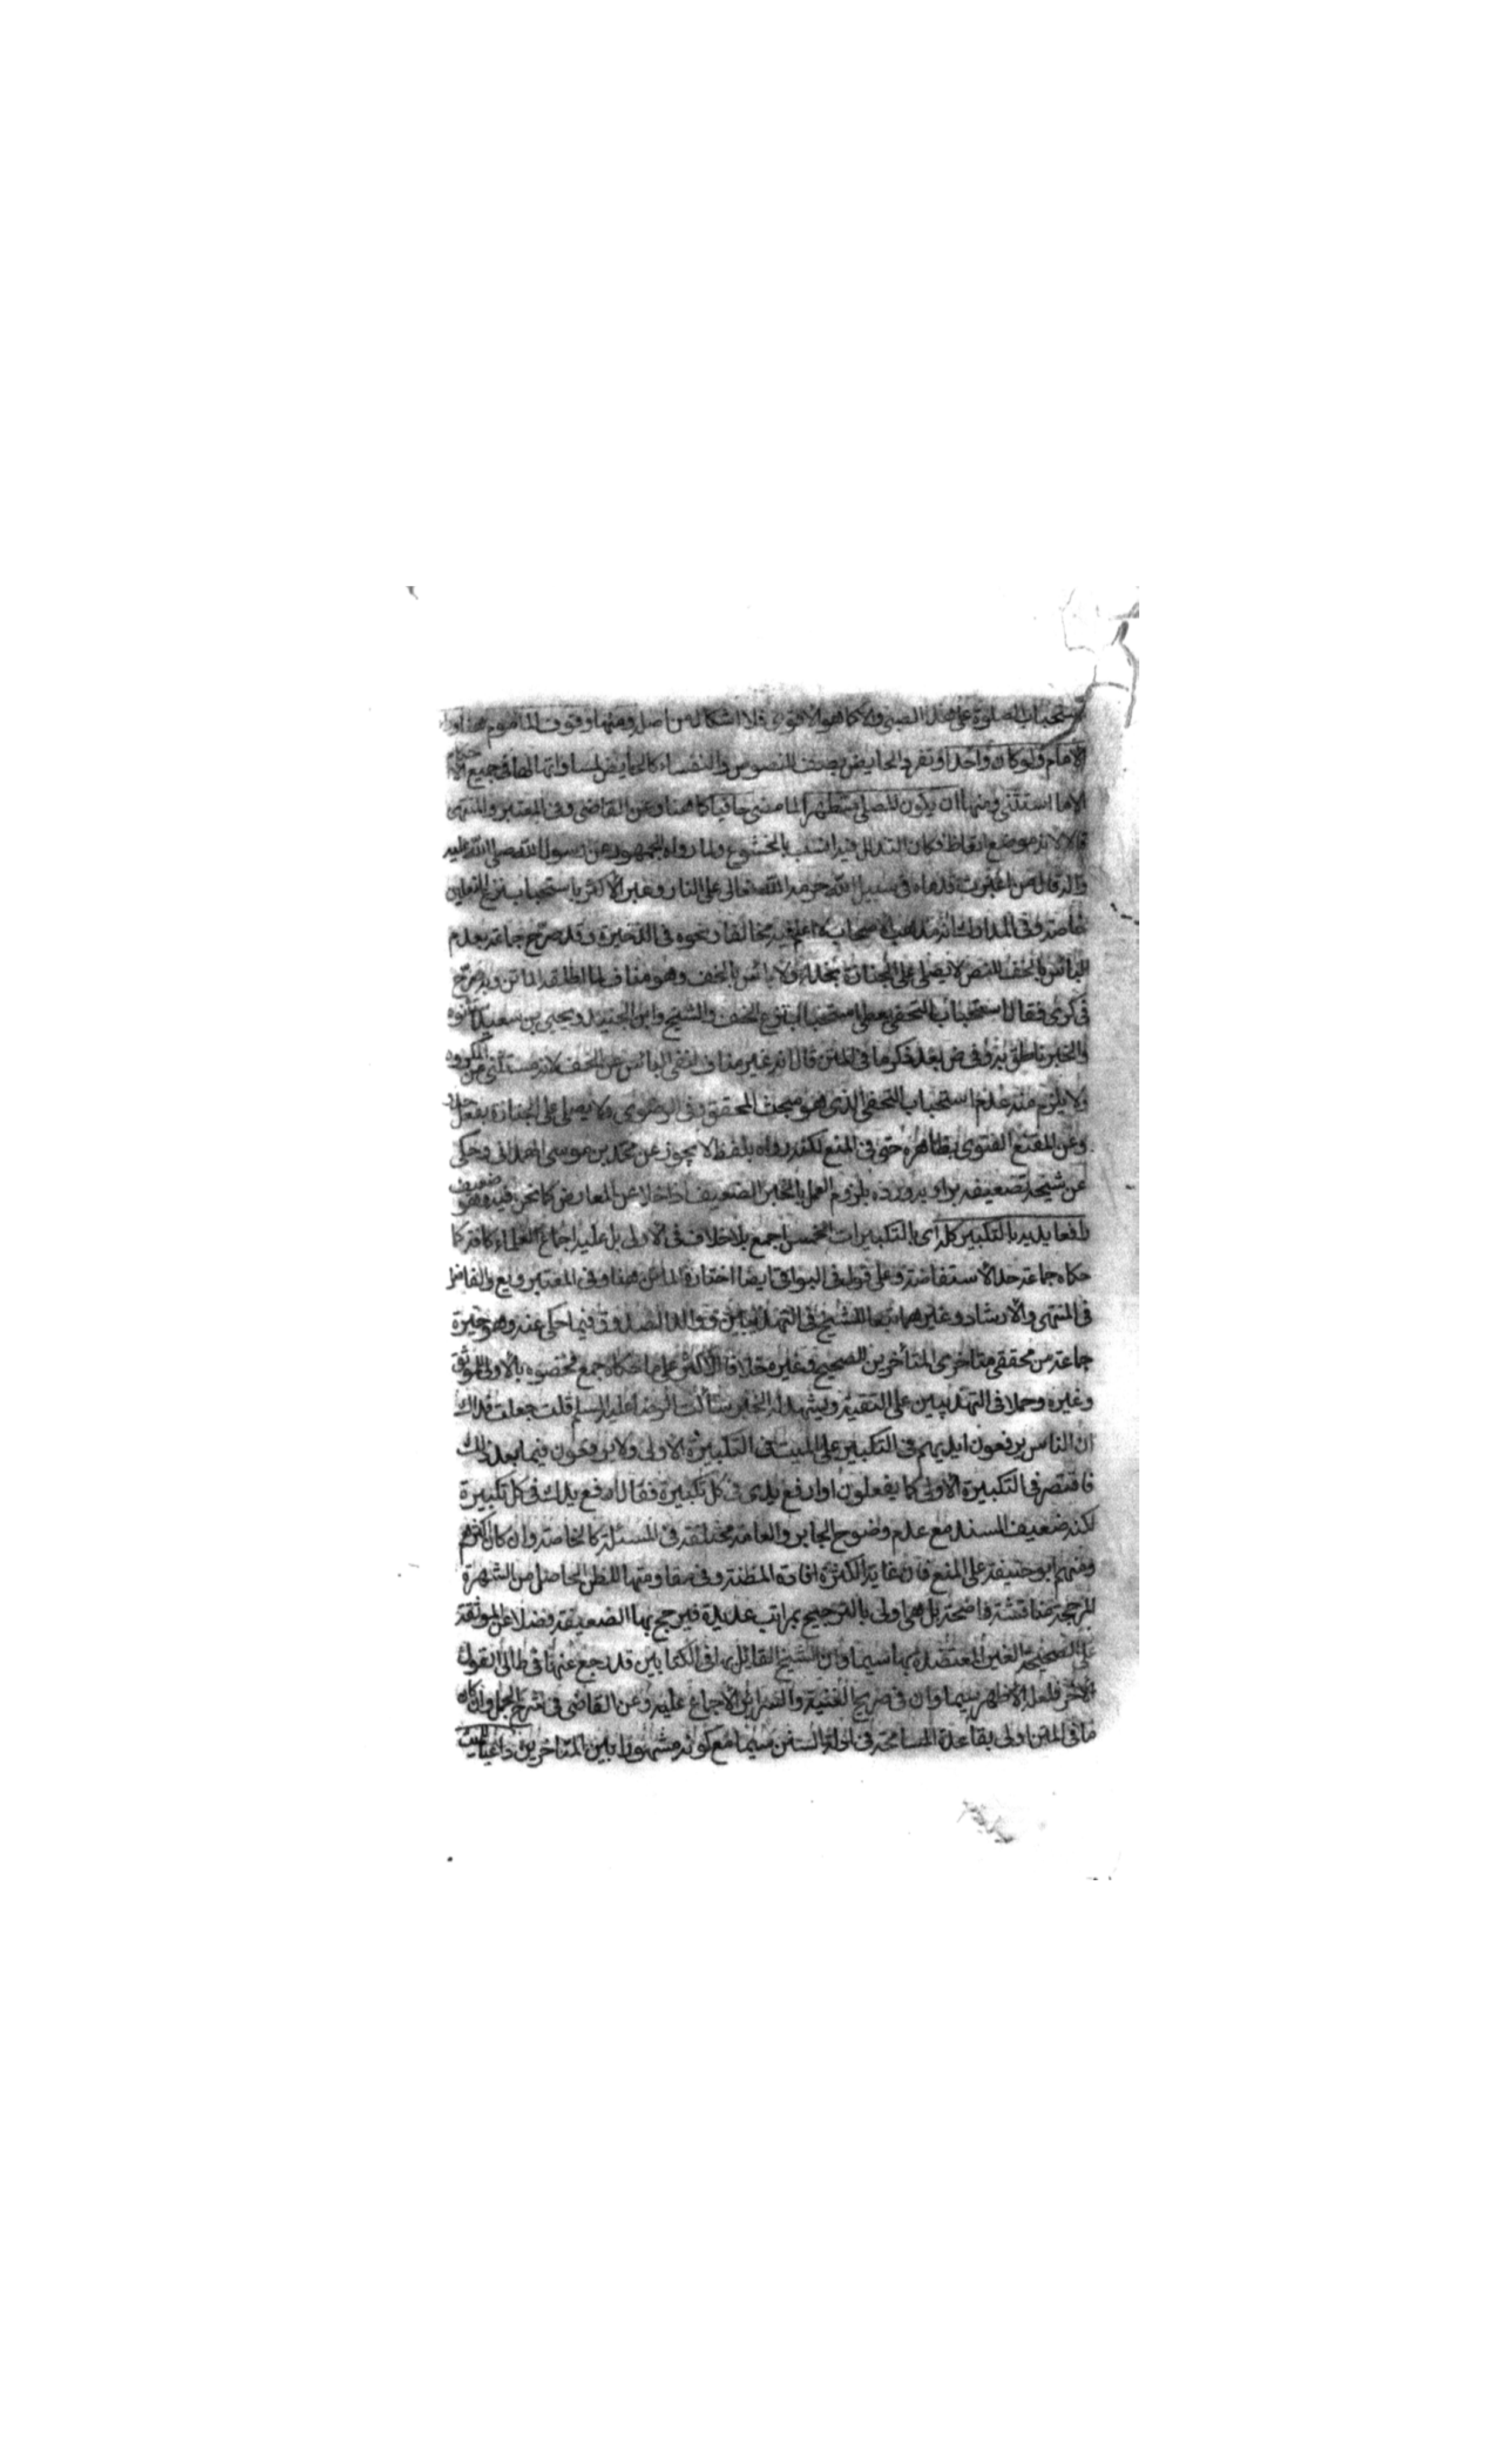 استحباب الصلوة على هذا الصبى والا كما هو الاقوى فلا اشكال من اصله ومنها وقوف الماموم هنا وراء
الامام ولو كان واحدا وتفرد الحايض بصف للنصوص والنفساء كالحايض لمساواتها لها فى جميع الاحكام
الا ما استثنى ومنها ان يكون المصلى متطهرا لما مضى حافيا كما هنا وعن القاضى وفى المعتبر والمنتهى
قالا لانه موضع اتعاظ فكان التذلل فيه انسب بالخشوع ولما رواه الجمهور عن رسول الله صلى الله عليه
واله قال من اغبرت قدماه فى سبيل الله حرمه الله تعالى على النار وعبر الاكثر باستحباب نزع النعلين
خاصة وفى المدارك انه مذهب الاصحاب لا اعلم فيه مخالفا ونحوه فى الذخيرة وقد صرح جماعة بعدم
الباس بالخف للنص لا يصلى على الجنازة بحذاء ولا باس بالخف وهو مناف لما اطلقه الماتن وبه صرح
فى كرى فقال استحباب التحفى يعطى استحباب نزع الخف والشيخ وابن الجنيد ويحيى بن سعيد استثنوه
والخبر ناطق به وفى ض بعد ذكر ما فى المتن قال انه غير مناف لنفى الباس عن الخف لانه مستثنى من المكروه
ولا يلزم منه عدم استحباب التحفى الذى هو مبحث المحقق وفى الرضوى ولا يصلى على الجنازة بنعل حذو
وعن المقنع الفتوى بظاهره حتى فى المنع لكنه رواه بلفظ لا يجوز عن محمد بن موسى الهمدانى وحكى
عن شيخه تضعيفه براويه ورده بلزوم العمل بالخبر الضعيف اذا خلا عن المعارض كما نحن فيه وهو ضعيف
رافعا يديه بالتكبير كله اى بالتكبيرات الخمس اجمع بلا خلاف فى الاولى بل عليه اجماع العلماء كافة كما
حكاه جماعة حد الاستفاضة وعلى قول فى البواقى ايضا اختاره الماتن هنا وفى المعتبر ويع والفاضل
فى المنتهى والارشاد وغيرهما تبعا للشيخ فى التهذيبين ووالد الصدوق فيما حكى عنه وهو خيرة
جماعة من محققى متاخرى المتأخرين للصحيح وغيره خلافا للاكثر على ما حكاه جمع فخصوه بالاولى للموثق
وغيره وحملا فى التهذيبين على التقية ويشهد له الخبر سألت الرضا عليه السلم قلت جعلت فداك
ان الناس يرفعون ايديهم فى التكبير على الميت فى التكبيرة الاولى ولا يرفعون فيما بعد ذلك
فاقتصر فى التكبيرة الاولى كما يفعلون او ارفع يدى فى كل تكبيرة فقال ارفع يدك فى كل تكبيرة
لكنه ضعيف السند مع عدم وضوح الجابر والعامة مختلفة فى المسئلة كالخاصة وان كان اكثرهم
ومنهم ابو حنيفة على المنع فان غاية الكثرة افادة المظنة وفى مقاومتها للظن الحاصل من الشهرة
المرجحة مناقشة واضحة بل هى اولى بالترجيح بمراتب عديدة فيرجح بها الضعيفة فضلا عن الموثقة
على الصحيحة الغير المعتضدة بها سيما وان الشيخ القائل بها فى الكتابين قد رجع عنها فى ط الى القول
الاخر فلعله الاظهر سيما وان فى صريح الغنية والسرائر الاجماع عليه وعن القاضى فى شرح الجمل وان كان
ما فى المتن اولى بقاعدة المسامحة فى ادلة السنن سيما مع كونه مشهورا بين المتاخرين داعيا للميت